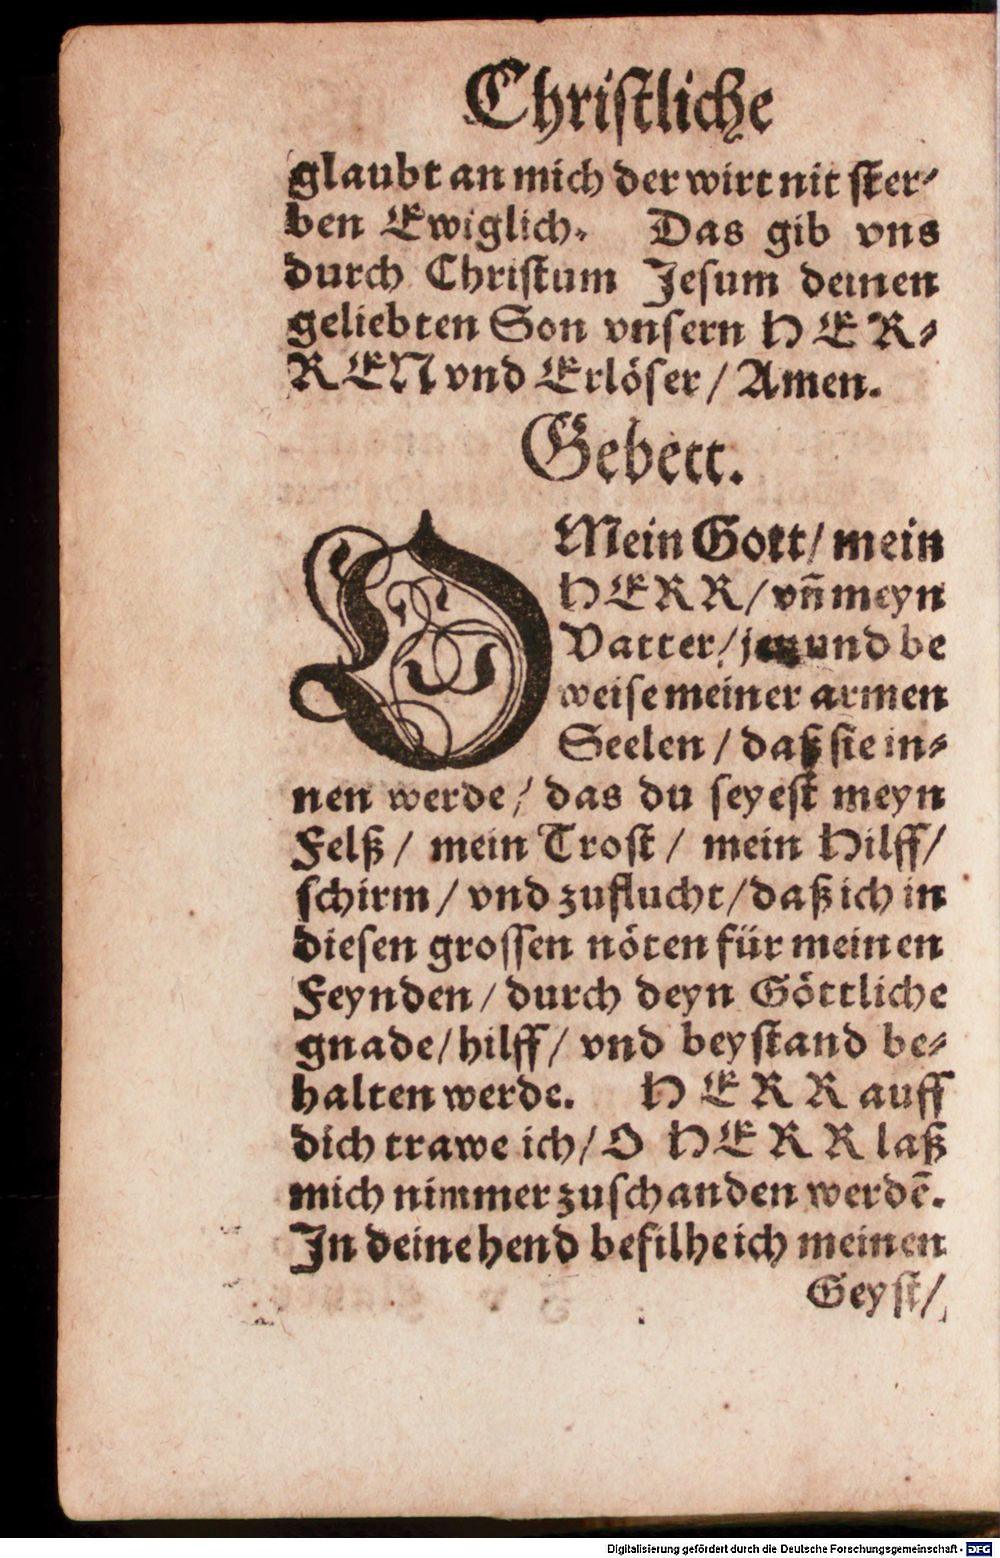 Christliche
glaubt an mich der wirt nit ster-
ben Ewiglich. Das gib vns
durch Christum Jesum deinen
geliebten Son vnsern HER-
REN vnd Erlöser / Amen.
Gebett.
O Mein Gott / mein
HERR / vn̄ meyn
Vatter / jetzund be
weise meiner armen
Seelen / daß sie in-
nen werde / das du seyest meyn
Felß / mein Trost / mein Hilff /
schirm / vnd zuflucht / daß ich in
diesen grossen nöten für meinen
Feynden / durch deyn Göttliche
gnade / hilff / vnd beystand be-
halten werde. HERR auff
dich trawe ich / O HERR laß
mich nimmer zuschanden werdē.
In deine hend befilhe ich meinen
Geyst /
Digitalisierung gefördert durch die Deutsche Forschungsgemeinschaft - DFG